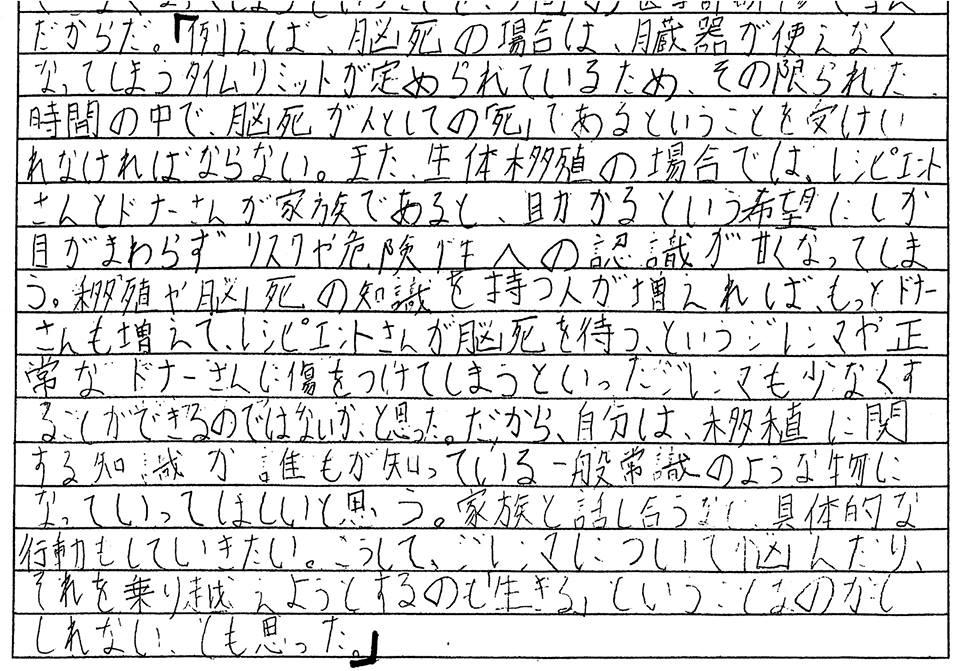 だからだ。「例えば、脳死の場合は、臓器が使えなく
なってしまうタイムリミットが定められているため、その限られた
時間の中で、脳死が人としての「死」であるということを受けい
れなければならない。また、生体移殖の場合では、レシピエント
さんとドナーさんが家族であると、助かるという希望にしか
目がまわらず リスクや危険性への認識が甘くなってしま
う。移殖や脳死の知識を持つ人が増えれば、もっとドナー
さんも増えて、レシピエントさんが脳死を待つ、というジレンマや正
常なドナーさんに傷をつけてしまうといったジレンマも少なくす
ることができるのではないか、と思った。だから、自分は、移植に関
する知識が誰もが知っている一般常識のような物に
なっていってほしいと思う。家族と話し合うなど、具体的な
行動もしていきたい。こうして、ジレンマについて悩んだり、
それを乗り越えようとするのも「生きる」ということなのかも
しれない、とも思った。」